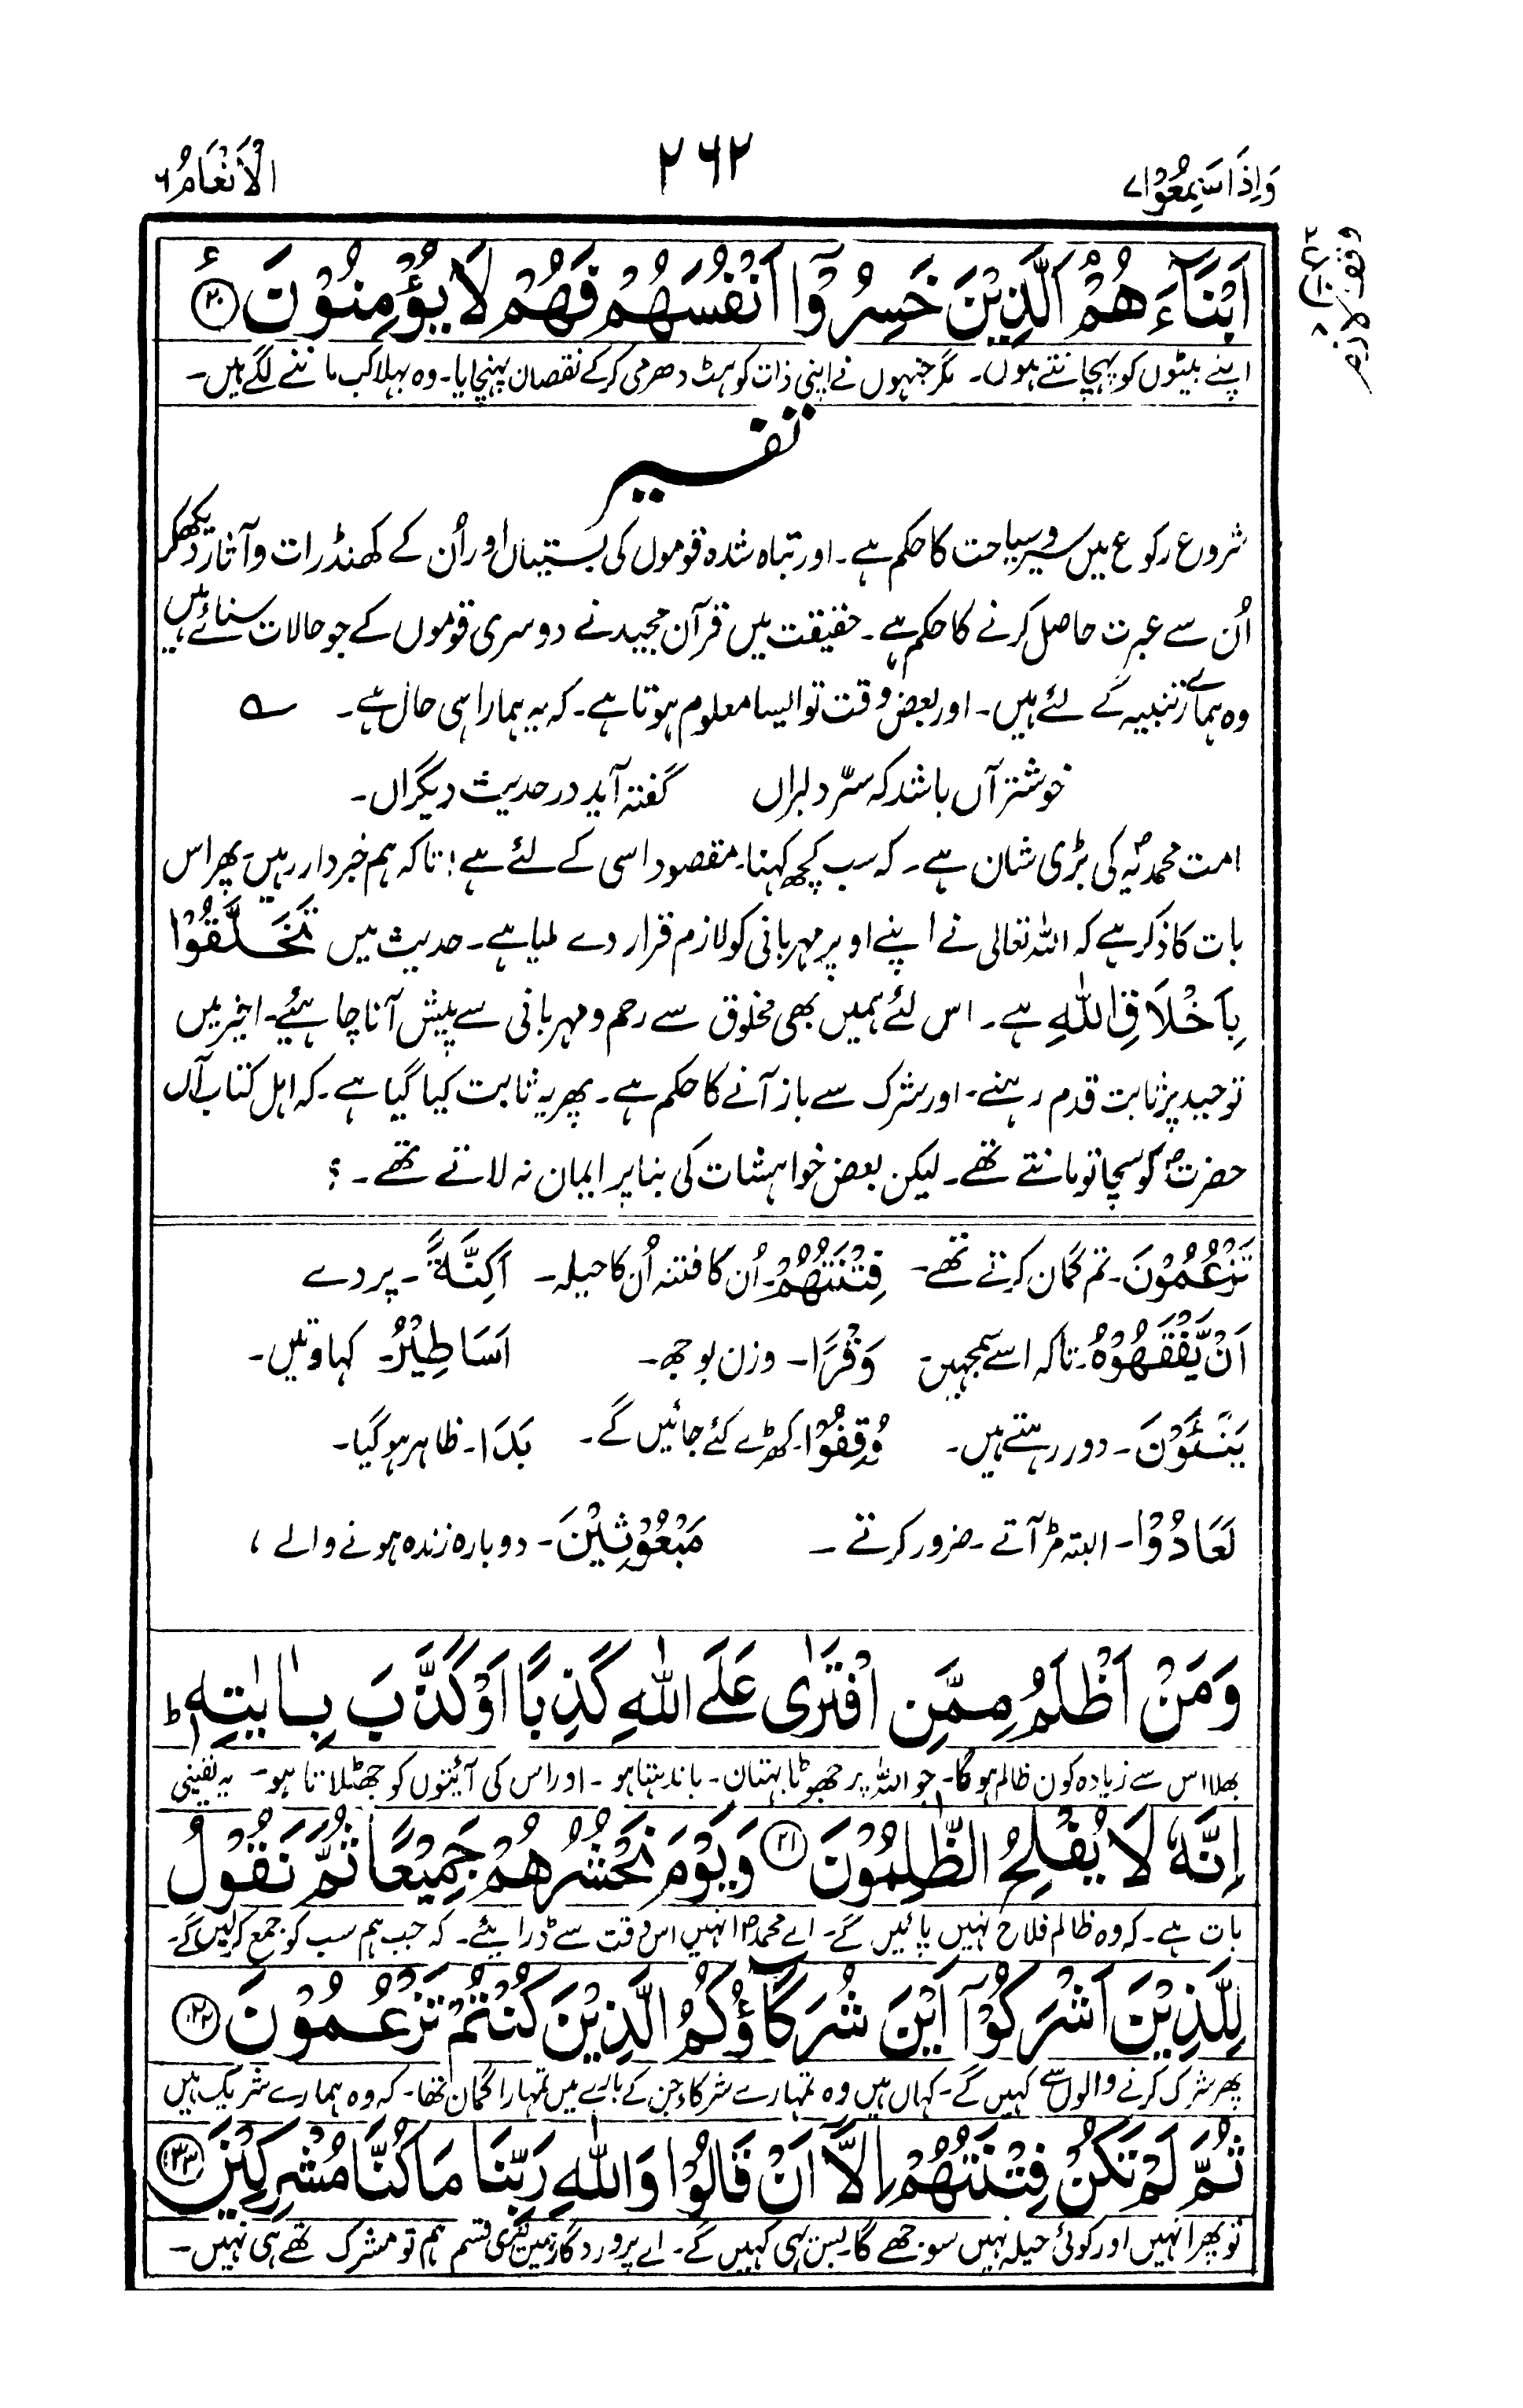 وَاِذَا سَمِعُوْا ۷
۲۶۲
الْاَنْعَامُ ۶
وقف لازم
اَبْنَآءَهُمْ اَلَّذِيْنَ خَسِرُوْٓا اَنْفُسَهُمْ فَهُمْ لَا يُؤْمِنُوْنَ ۲۰ ع
اپنے بیٹوں کو پہچانتے ہوں۔ مگر جنہوں نے اپنی ذات کو ہٹ دھرمی کرکے نقصان پہنچایا۔ وہ بھلا کب ماننے لگے ہیں۔
تفسیر
شروع رکوع میں سیر و سیاحت کا حکم ہے۔ اور تباہ شدہ قوموں کی بستیاں اور اُن کے کھنڈرات و آثار دیکھکر
اُن سے عبرت حاصل کرنے کا حکم ہے۔ حقیقت میں قرآن مجید نے دوسری قوموں کے جو حالات سنائے ہیں
وہ ہمارے تنبیہ کے لئے ہیں۔ اور بعض وقت تو ایسا معلوم ہوتا ہے۔ کہ یہ ہمارا ہی حال ہے۔ ؎
خوشتر آں باشد کہ سرّ دلبراں گفتہ آید در حدیث دیگراں۔
امت محمدیہؐ کی بڑی شان ہے۔ کہ سب کچھ کہنا۔ مقصود اسی کے لئے ہے! تاکہ ہم خبردار رہیں۔ پھر اس
بات کا ذکر ہے کہ اللہ تعالی نے اپنے اوپر مہربانی کو لازم قرار دے لیا ہے۔ حدیث میں تَخَلَّقُوْا
بِاَخْلَاقِ اللّٰهِ ہے۔ اس لئے ہمیں بھی مخلوق سے رحم و مہربانی سے پیش آنا چاہئیے۔ اخیر میں
توحید پر ثابت قدم رہنے۔ اور شرک سے باز آنے کا حکم ہے۔ پھر یہ ثابت کیا گیا ہے۔ کہ اہل کتاب آں
حضرتؐ کو سچا تو مانتے تھے۔ لیکن بعض خواہشات کی بنا پر ایمان نہ لاتے تھے۔ ؟
تَزْعُمُوْنَ۔ تم گمان کرتے تھے۔ فِتْنَتُهُمْ۔ اُن کا فتنہ اُن کا حیلہ۔ اَكِنَّةً۔ پردے
اَنْ يَّفْقَهُوْهُ۔ تاکہ اسے سمجہیں۔ وَقْرًا۔ وزن بوجھ۔ اَسَاطِيْرُ۔ کہاوتیں۔
يَنْـَٔوْنَ۔ دور رہتے ہیں۔ وُقِفُوْا۔ کھڑے کئے جائیں گے۔ بَدَا۔ ظاہر ہو گیا۔
لَعَادُوْا۔ البتہ مڑ آتے۔ ضرور کرتے۔ مَبْعُوْثِيْنَ۔ دوبارہ زندہ ہونے والے ،
وَمَنْ اَظْلَمُ مِمَّنِ افْتَرٰى عَلَى اللّٰهِ كَذِبًا اَوْ كَذَّبَ بِاٰيٰتِهٖ ط
بھلا اس سے زیادہ کون ظالم ہو گا۔ جو اللہ پر جھوٹا بہتان۔ باندہتا ہو۔ اور اس کی آئیتوں کو جھٹلاتا ہو۔ یہ یقینی
اِنَّهٗ لَا يُفْلِحُ الظّٰلِمُوْنَ ۲۱ وَيَوْمَ نَحْشُرُهُمْ جَمِيْعًا ثُمَّ نَقُوْلُ
بات ہے۔ کہ وہ ظالم فلاح نہیں پائیں گے۔ اے محمدؐ انہیں اس وقت سے ڈرایئے۔ کہ جب ہم سب کو جمع کرلیں گے۔
لِلَّذِيْنَ اَشْرَكُوْٓا اَيْنَ شُرَكَآؤُكُمُ الَّذِيْنَ كُنْتُمْ تَزْعُمُوْنَ ۲۲
پھر شرک کرنے والوں سے کہیں گے۔ کہاں ہیں وہ تمہارے شرکاء جن کے بارے میں تمہارا گمان تھا۔ کہ وہ ہمارے شریک ہیں
ثُمَّ لَمْ تَكُنْ فِتْنَتُهُمْ اِلَّآ اَنْ قَالُوْا وَاللّٰهِ رَبِّنَا مَا كُنَّا مُشْرِكِيْنَ ۲۳
تو پھر انہیں اور کوئی حیلہ نہیں سوجھے گا۔ بس یہی کہیں گے۔ اے پروردگار ہمیں تیری قسم ہم تو مشرک تھے ہی نہیں۔